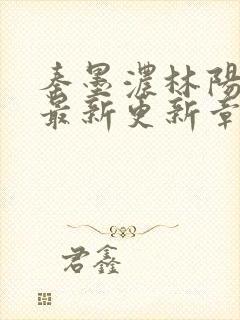 秦墨濃林陽
最新更新章
君鑫